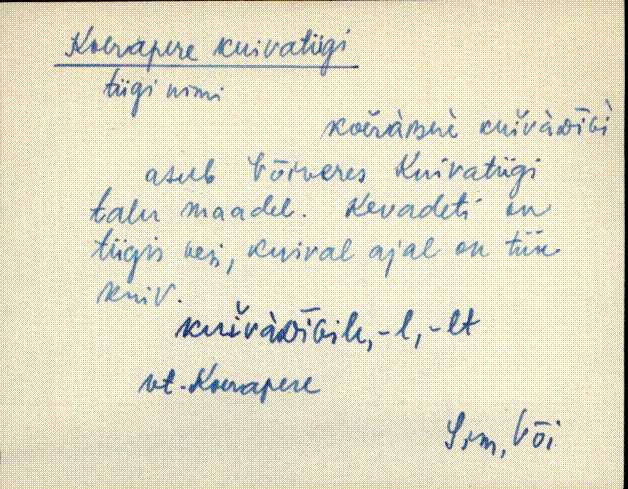 Koerapere kuivatiigi
tiigi nimi
asub Võiveres Kuivatiigi
talu maadel. Kevadeti on
tiigis vesi, kuival ajal on tiik
kuiv.
-l, -lt
vt. Koerapere
Sim, Või